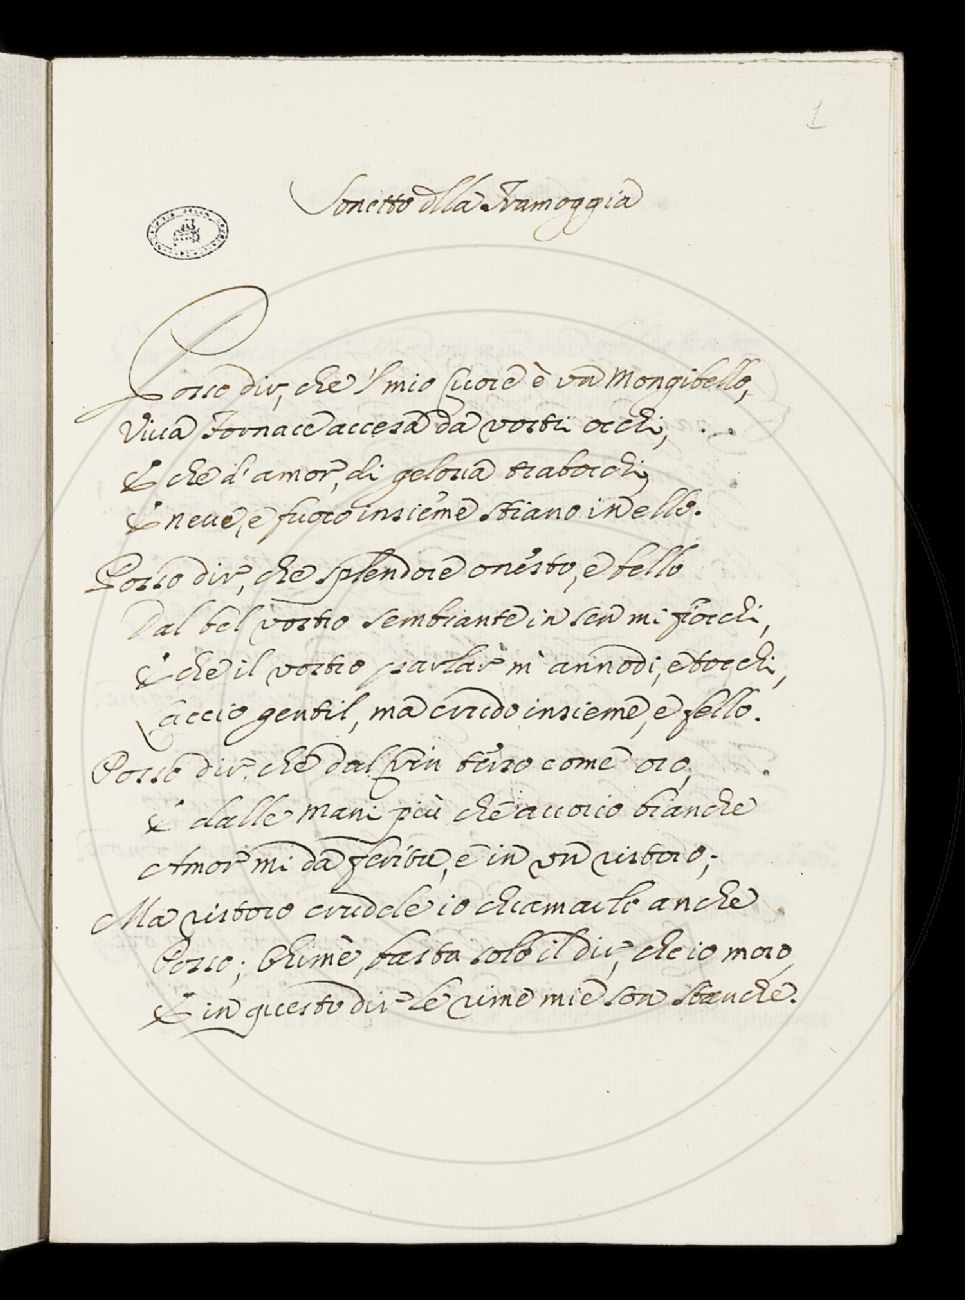 1
Sonetto dlla Tramoggia
Posso dir, che 'l mio Cuore è vn Mongibello,
Viua Fornace accesa da vostri occhi,
E che d'amor, di gelosia trabocchi,
E neue, e fuoco insieme stiano in ello.
Posso dir, che splendore onesto, e bello
Dal bel vostro sembiante in sen mi fiocchi,
E che il vostro parlar m'annodi, e tocchi,
Laccio gentil, ma crudo insieme, e fello.
Posso dir che dal Crin terso come oro,
E dalle mani più che auorio bianche
Amor mi da ferite, e in vn ristoro;
Ma ristoro crudele io chiamarlo anche
Posso; Ohimè, basta solo il dir, che io moro,
E in questo dir le rime mie son stanche.